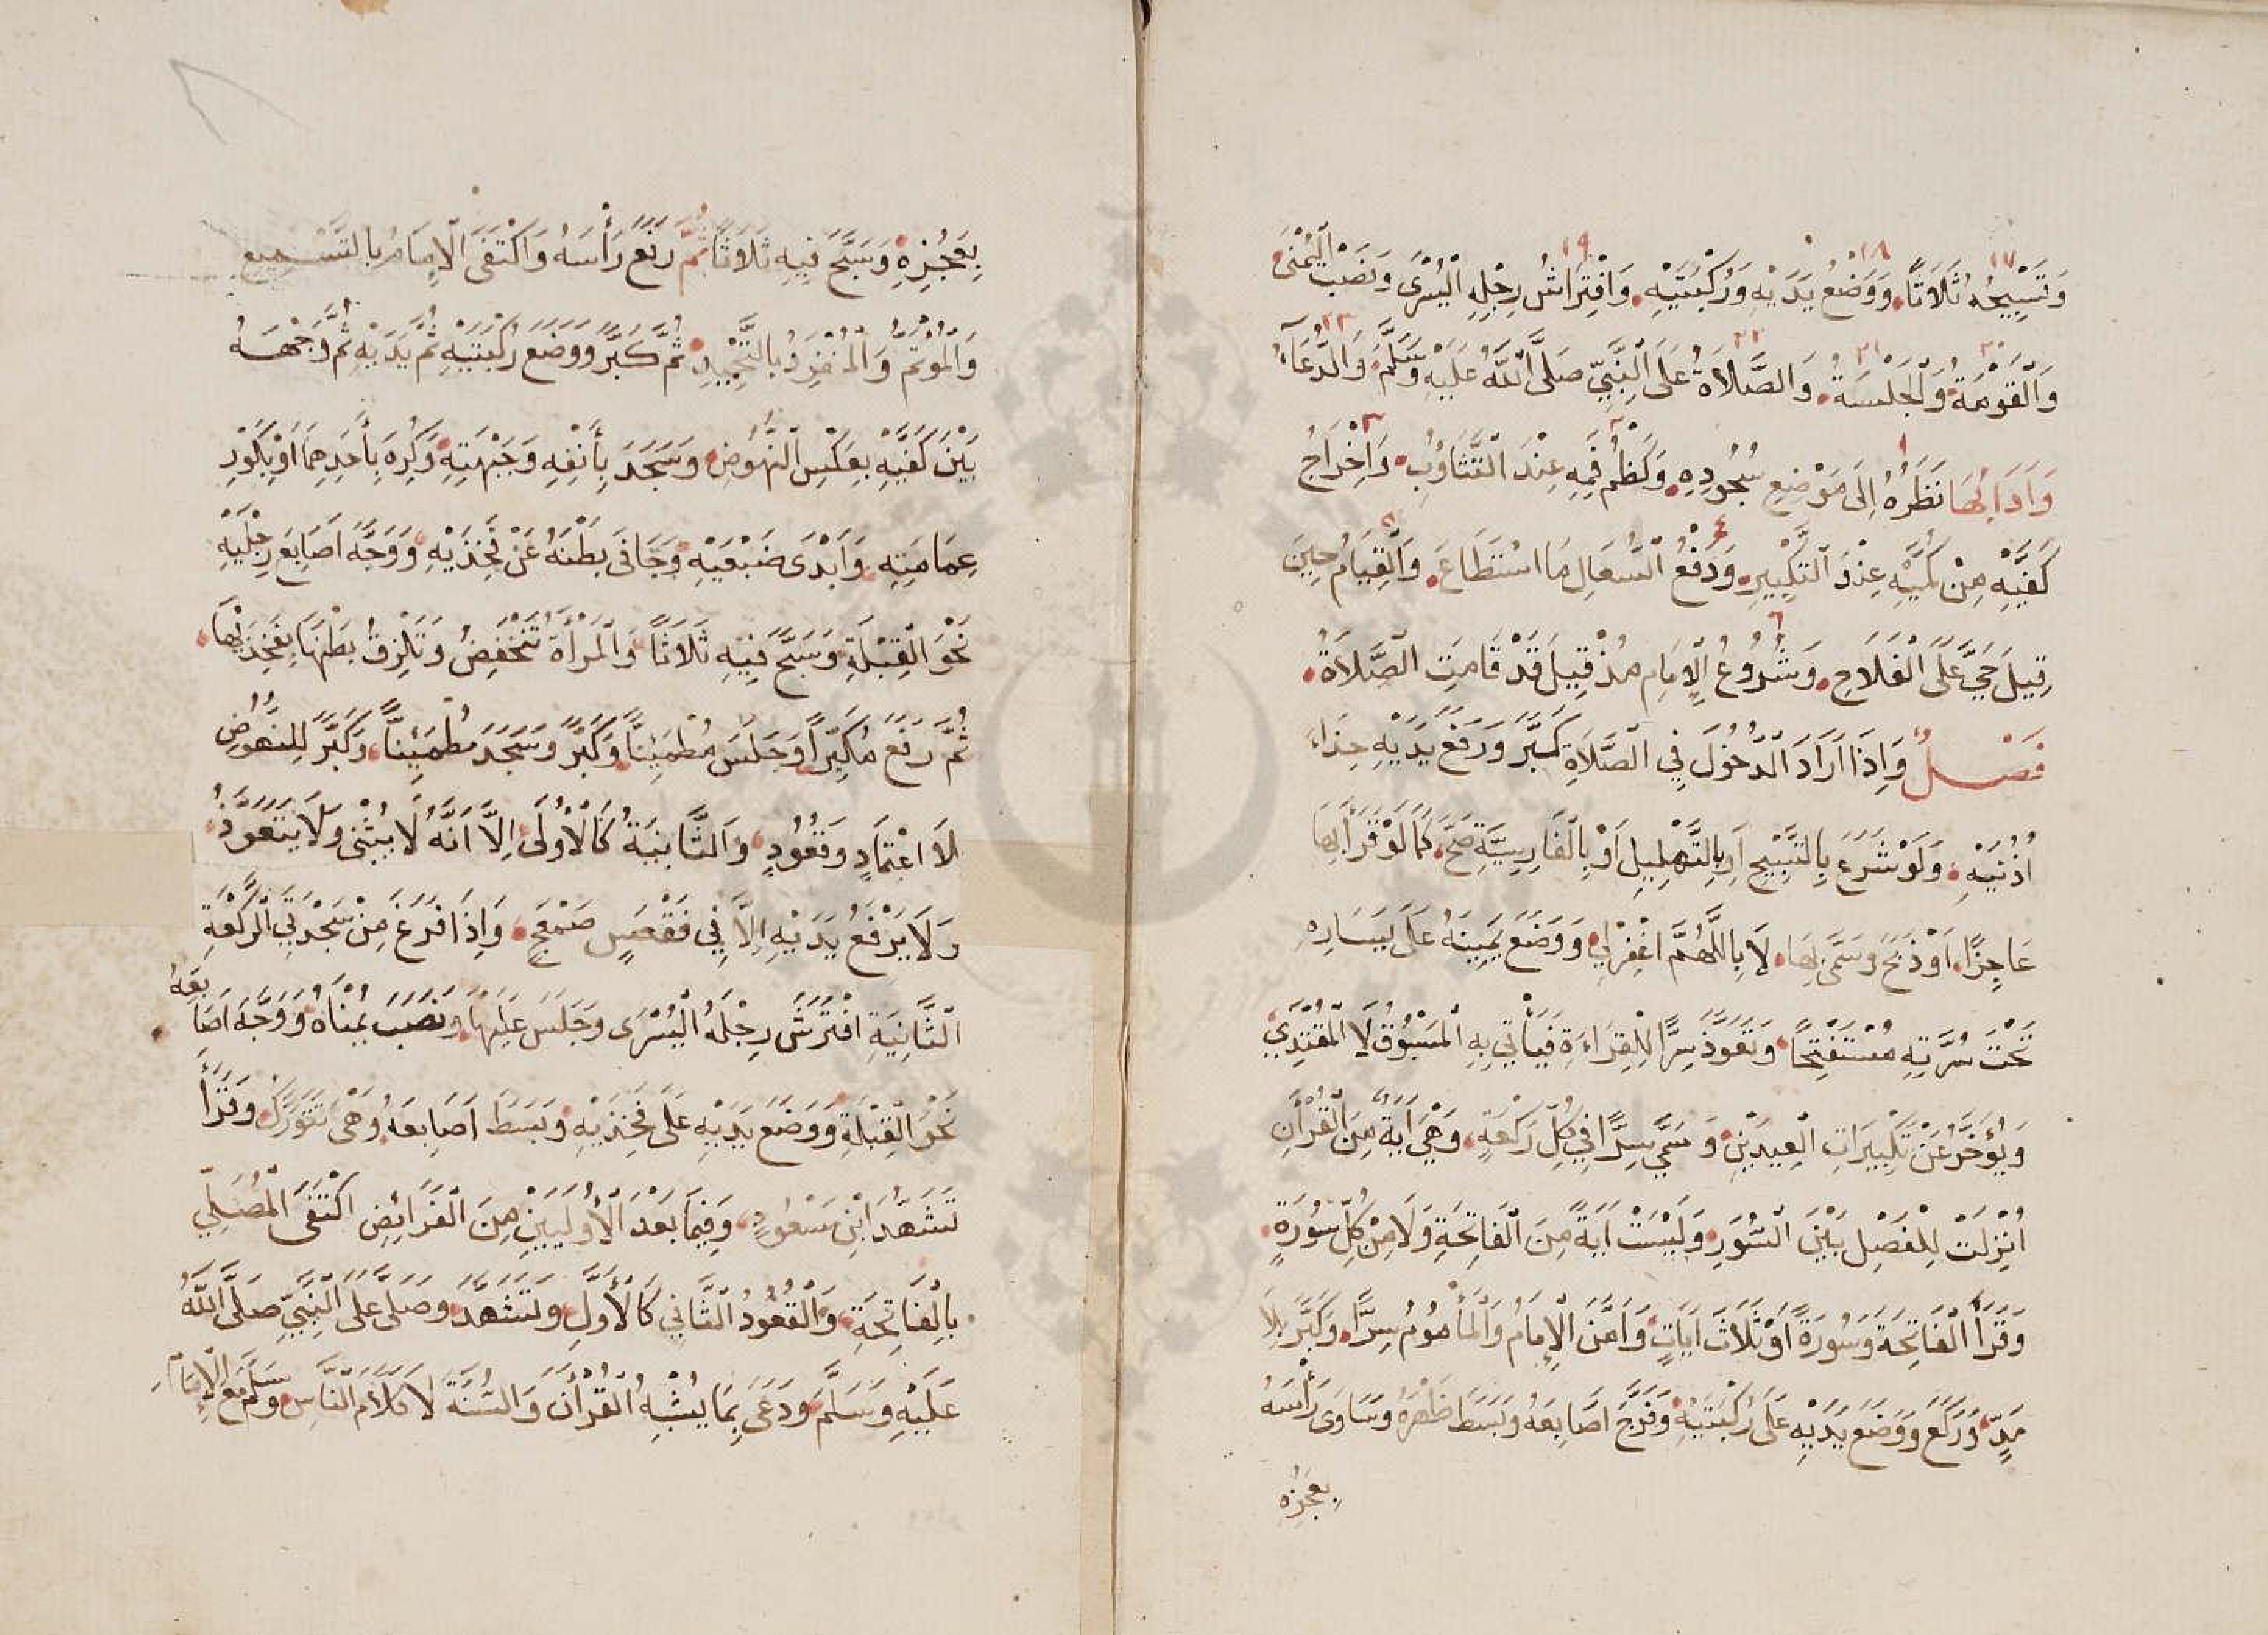 ١٧ ١٨ ١٩
وَتَسْبِيحُهُ ثَلَاثًا وَوَضْعُ يَدَيْهِ وَرُكْبَتَيْهِ وَافْتِرَاشُ رِجْلِهِ الْيُسْرَى وَنَصْبُ الْيُمْنَى
٢٠ ٢١ ٢٢ ٢٣
وَالْقَوْمَةُ وَالْجَلْسَةُ وَالصَّلَاةُ عَلَى النَّبِيِّ صَلَّى اللَّهُ عَلَيْهِ وَسَلَّمَ وَالدُّعَاءُ
١ ٢ ٣
وَآدَابُهَا نَظَرُهُ إِلَى مَوْضِعِ سُجُودِهِ وَكَظْمُ فَمِهِ عِنْدَ التَّثَاوُبِ وَإِخْرَاجُ
٤ ٥
كَفَّيْهِ مِنْ كُمَّيْهِ عِنْدَ التَّكْبِيرِ وَدَفْعُ السُّعَالِ مَا اسْتَطَاعَ وَالْقِيَامُ حِينَ
٦
قِيلَ حَيَّ عَلَى الْفَلَاحِ وَشُرُوعُ الْإِمَامِ مُذْ قِيلَ قَدْ قَامَتِ الصَّلَاةُ
فَصْلٌ وَإِذَا أَرَادَ الدُّخُولَ فِي الصَّلَاةِ كَبَّرَ وَرَفَعَ يَدَيْهِ حِذَاءَ
أُذُنَيْهِ وَلَوْ شَرَعَ بِالتَّسْبِيحِ أَوْ بِالتَّهْلِيلِ أَوْ بِالْفَارِسِيَّةِ صَحَّ كَمَا لَوْ قَرَأَ بِهَا
عَاجِزًا أَوْ ذَبَحَ وَسَمَّى بِهَا لَا بِاللَّهُمَّ اغْفِرْ لِي وَوَضَعَ يَمِينَهُ عَلَى يَسَارِهِ
تَحْتَ سُرَّتِهِ مُسْتَفْتِحًا وَتَعَوَّذَ سِرًّا لِلْقِرَاءَةِ فَيَأْتِي بِهِ الْمَسْبُوقُ لَا الْمُقْتَدِي
وَيُؤَخَّرُ عَنْ تَكْبِيرَاتِ الْعِيدَيْنِ وَسَمَّى سِرًّا فِي كُلِّ رَكْعَةٍ وَهِيَ آيَةٌ مِنَ الْقُرْآنِ
أُنْزِلَتْ لِلْفَصْلِ بَيْنَ السُّوَرِ وَلَيْسَتْ آيَةً مِنَ الْفَاتِحَةِ وَلَا مِنْ كُلِّ سُورَةٍ
وَقَرَأَ الْفَاتِحَةَ وَسُورَةً أَوْ ثَلَاثَ آيَاتٍ وَأَمَّنَ الْإِمَامُ وَالْمَأْمُومُ سِرًّا وَكَبَّرَ بِلَا
مَدٍّ وَرَكَعَ وَوَضَعَ يَدَيْهِ عَلَى رُكْبَتَيْهِ وَفَرَّجَ أَصَابِعَهُ وَبَسَطَ ظَهْرَهُ وَسَاوَى رَأْسَهُ
بِعَجُزِهِ
بِعَجُزِهِ وَسَبَّحَ فِيهِ ثَلَاثًا ثُمَّ رَفَعَ رَأْسَهُ وَاكْتَفَى الْإِمَامُ بِالتَّسْمِيعِ
وَالْمُؤْتَمُّ وَالْمُنْفَرِدُ بِالتَّحْمِيدِ ثُمَّ كَبَّرَ وَوَضَعَ رُكْبَتَيْهِ ثُمَّ يَدَيْهِ ثُمَّ وَجْهَهُ
بَيْنَ كَفَّيْهِ بِعَكْسِ النُّهُوضِ وَسَجَدَ بِأَنْفِهِ وَجَبْهَتِهِ وَكُرِهَ بِأَحَدِهِمَا أَوْ بِكَوْرِ
عِمَامَتِهِ وَأَبْدَى ضَبْعَيْهِ وَجَافَى بَطْنَهُ عَنْ فَخِذَيْهِ وَوَجَّهَ أَصَابِعَ رِجْلَيْهِ
نَحْوَ الْقِبْلَةِ وَسَبَّحَ فِيهِ ثَلَاثًا وَالْمَرْأَةُ تَنْخَفِضُ وَتَلْزَقُ بَطْنَهَا بِفَخِذَيْهَا
ثُمَّ رَفَعَ مُكَبِّرًا وَجَلَسَ مُطْمَئِنًّا وَكَبَّرَ وَسَجَدَ مُطْمَئِنًّا وَكَبَّرَ لِلنُّهُوضِ
لَا اعْتِمَادٍ وَقُعُودٍ وَالثَّانِيَةُ كَالْأُولَى إِلَّا أَنَّهُ لَا يُثْنِي وَلَا يَتَعَوَّذُ
وَلَا يَرْفَعُ يَدَيْهِ إِلَّا فِي فَقْعَسٍ صَمْعَجٍ وَإِذَا فَرَغَ مِنْ سَجْدَتَيِ الرَّكْعَةِ
الثَّانِيَةِ افْتَرَشَ رِجْلَهُ الْيُسْرَى وَجَلَسَ عَلَيْهَا وَنَصَبَ يُمْنَاهُ وَوَجَّهَ أَصَابِعَهُ
نَحْوَ الْقِبْلَةِ وَوَضَعَ يَدَيْهِ عَلَى فَخِذَيْهِ وَبَسَطَ أَصَابِعَهُ وَهِيَ تَتَوَرَّكُ وَقَرَأَ
تَشَهُّدَ ابْنِ مَسْعُودٍ وَفِيمَا بَعْدَ الْأُولَيَيْنِ مِنَ الْفَرَائِضِ اكْتَفَى الْمُصَلِّي
بِالْفَاتِحَةِ وَالْقُعُودُ الثَّانِي كَالْأَوَّلِ وَتَشَهَّدَ وَصَلَّى عَلَى النَّبِيِّ صَلَّى اللَّهُ
عَلَيْهِ وَسَلَّمَ وَدَعَى بِمَا يُشْبِهُ الْقُرْآنَ وَالسُّنَّةَ لَا كَلَامَ النَّاسِ وَسَلَّمَ مَعَ الْإِمَامِ